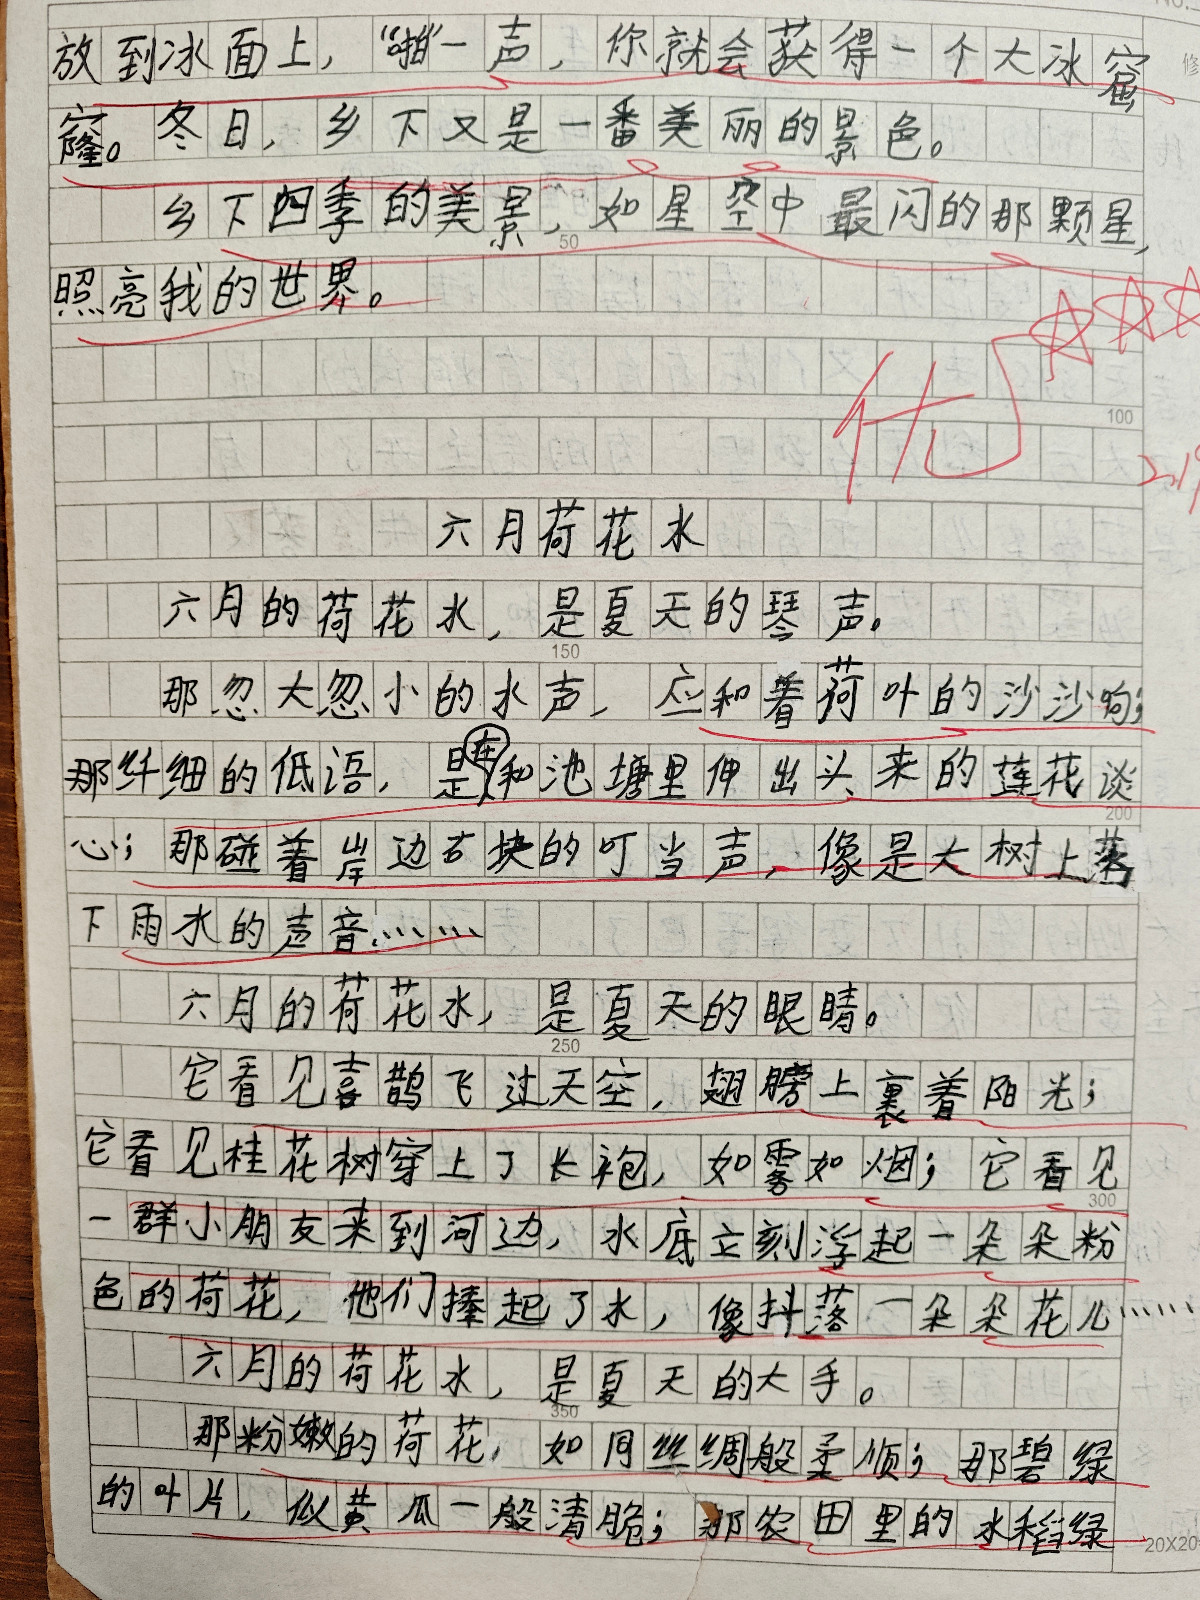 放到冰面上，“啪”一声，你就会获得一个大冰窟
窿。冬日，乡下又是一番美丽的景色。
乡下四季的美景，如星空中最闪的那颗星，
照亮我的世界。
优
六月荷花水
六月的荷花水，是夏天的琴声。
那忽大忽小的水声，应和着荷叶的沙沙响；
那纤细的低语，是在和池塘里伸出头来的莲花谈
心；那碰着岸边石块的叮当声，像是大树上落
下雨水的声音……
六月的荷花水，是夏天的眼睛。
它看见喜鹊飞过天空，翅膀上裹着阳光；
它看见桂花树穿上了长袍，如雾如烟；它看见
一群小朋友来到河边，水底立刻浮起一朵朵粉
色的荷花，他们捧起了水，像抖落一朵朵花儿……
六月的荷花水，是夏天的大手。
那粉嫩的荷花，如同丝绸般柔顺；那碧绿
的叶片，似黄瓜一般清脆；那农田里的水稻绿
50
100
150
200
250
300
350
20X20